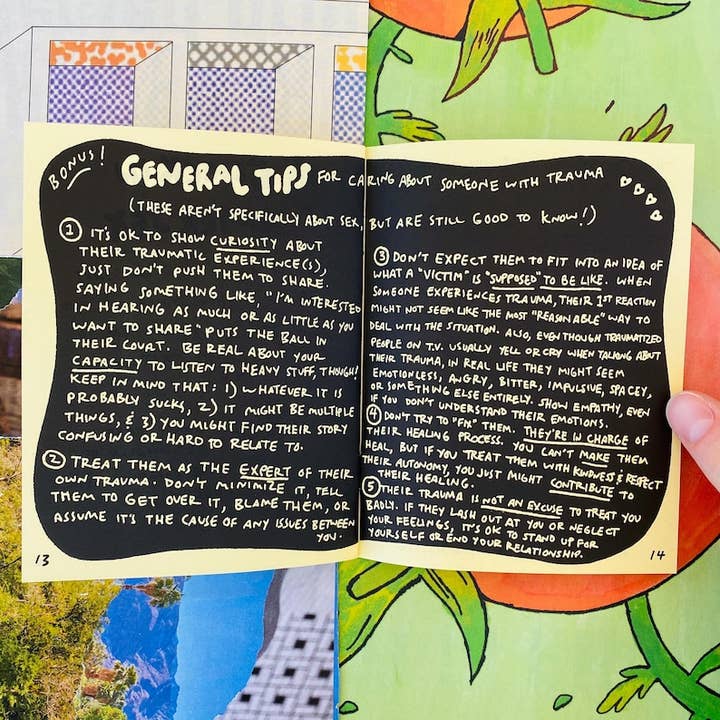 BONUS!
GENERAL TIPS FOR CARING ABOUT SOMEONE WITH TRAUMA
(THESE AREN'T SPECIFICALLY ABOUT SEX, BUT ARE STILL GOOD TO KNOW!)
1 IT'S OK TO SHOW CURIOSITY ABOUT
THEIR TRAUMATIC EXPERIENCE(S),
JUST DON'T PUSH THEM TO SHARE.
SAYING SOMETHING LIKE, "I'M INTERESTED
IN HEARING AS MUCH OR AS LITTLE AS YOU
WANT TO SHARE" PUTS THE BALL IN
THEIR COURT. BE REAL ABOUT YOUR
CAPACITY TO LISTEN TO HEAVY STUFF, THOUGH!
KEEP IN MIND THAT: 1) WHATEVER IT IS
PROBABLY SUCKS, 2) IT MIGHT BE MULTIPLE
THINGS, & 3) YOU MIGHT FIND THEIR STORY
CONFUSING OR HARD TO RELATE TO.
2 TREAT THEM AS THE EXPERT OF THEIR
OWN TRAUMA. DON'T MINIMIZE IT, TELL
THEM TO GET OVER IT, BLAME THEM, OR
ASSUME IT'S THE CAUSE OF ANY ISSUES BETWEEN
YOU.
13
3 DON'T EXPECT THEM TO FIT INTO AN IDEA OF
WHAT A "VICTIM" IS "SUPPOSED" TO BE LIKE. WHEN
SOMEONE EXPERIENCES TRAUMA, THEIR 1ST REACTION
MIGHT NOT SEEM LIKE THE MOST "REASONABLE" WAY TO
DEAL WITH THE SITUATION. ALSO, EVEN THOUGH TRAUMATIZED
PEOPLE ON T.V. USUALLY YELL OR CRY WHEN TALKING ABOUT
THEIR TRAUMA, IN REAL LIFE THEY MIGHT SEEM
EMOTIONLESS, ANGRY, BITTER, IMPULSIVE, SPACEY,
OR SOMETHING ELSE ENTIRELY. SHOW EMPATHY, EVEN
IF YOU DON'T UNDERSTAND THEIR EMOTIONS.
4 DON'T TRY TO "FIX" THEM. THEY'RE IN CHARGE OF
THEIR HEALING PROCESS. YOU CAN'T MAKE THEM
HEAL, BUT IF YOU TREAT THEM WITH KINDNESS & RESPECT
THEIR AUTONOMY, YOU JUST MIGHT CONTRIBUTE TO
THEIR HEALING.
5 THEIR TRAUMA IS NOT AN EXCUSE TO TREAT YOU
BADLY. IF THEY LASH OUT AT YOU OR NEGLECT
YOUR FEELINGS, IT'S OK TO STAND UP FOR
YOURSELF OR END YOUR RELATIONSHIP.
14